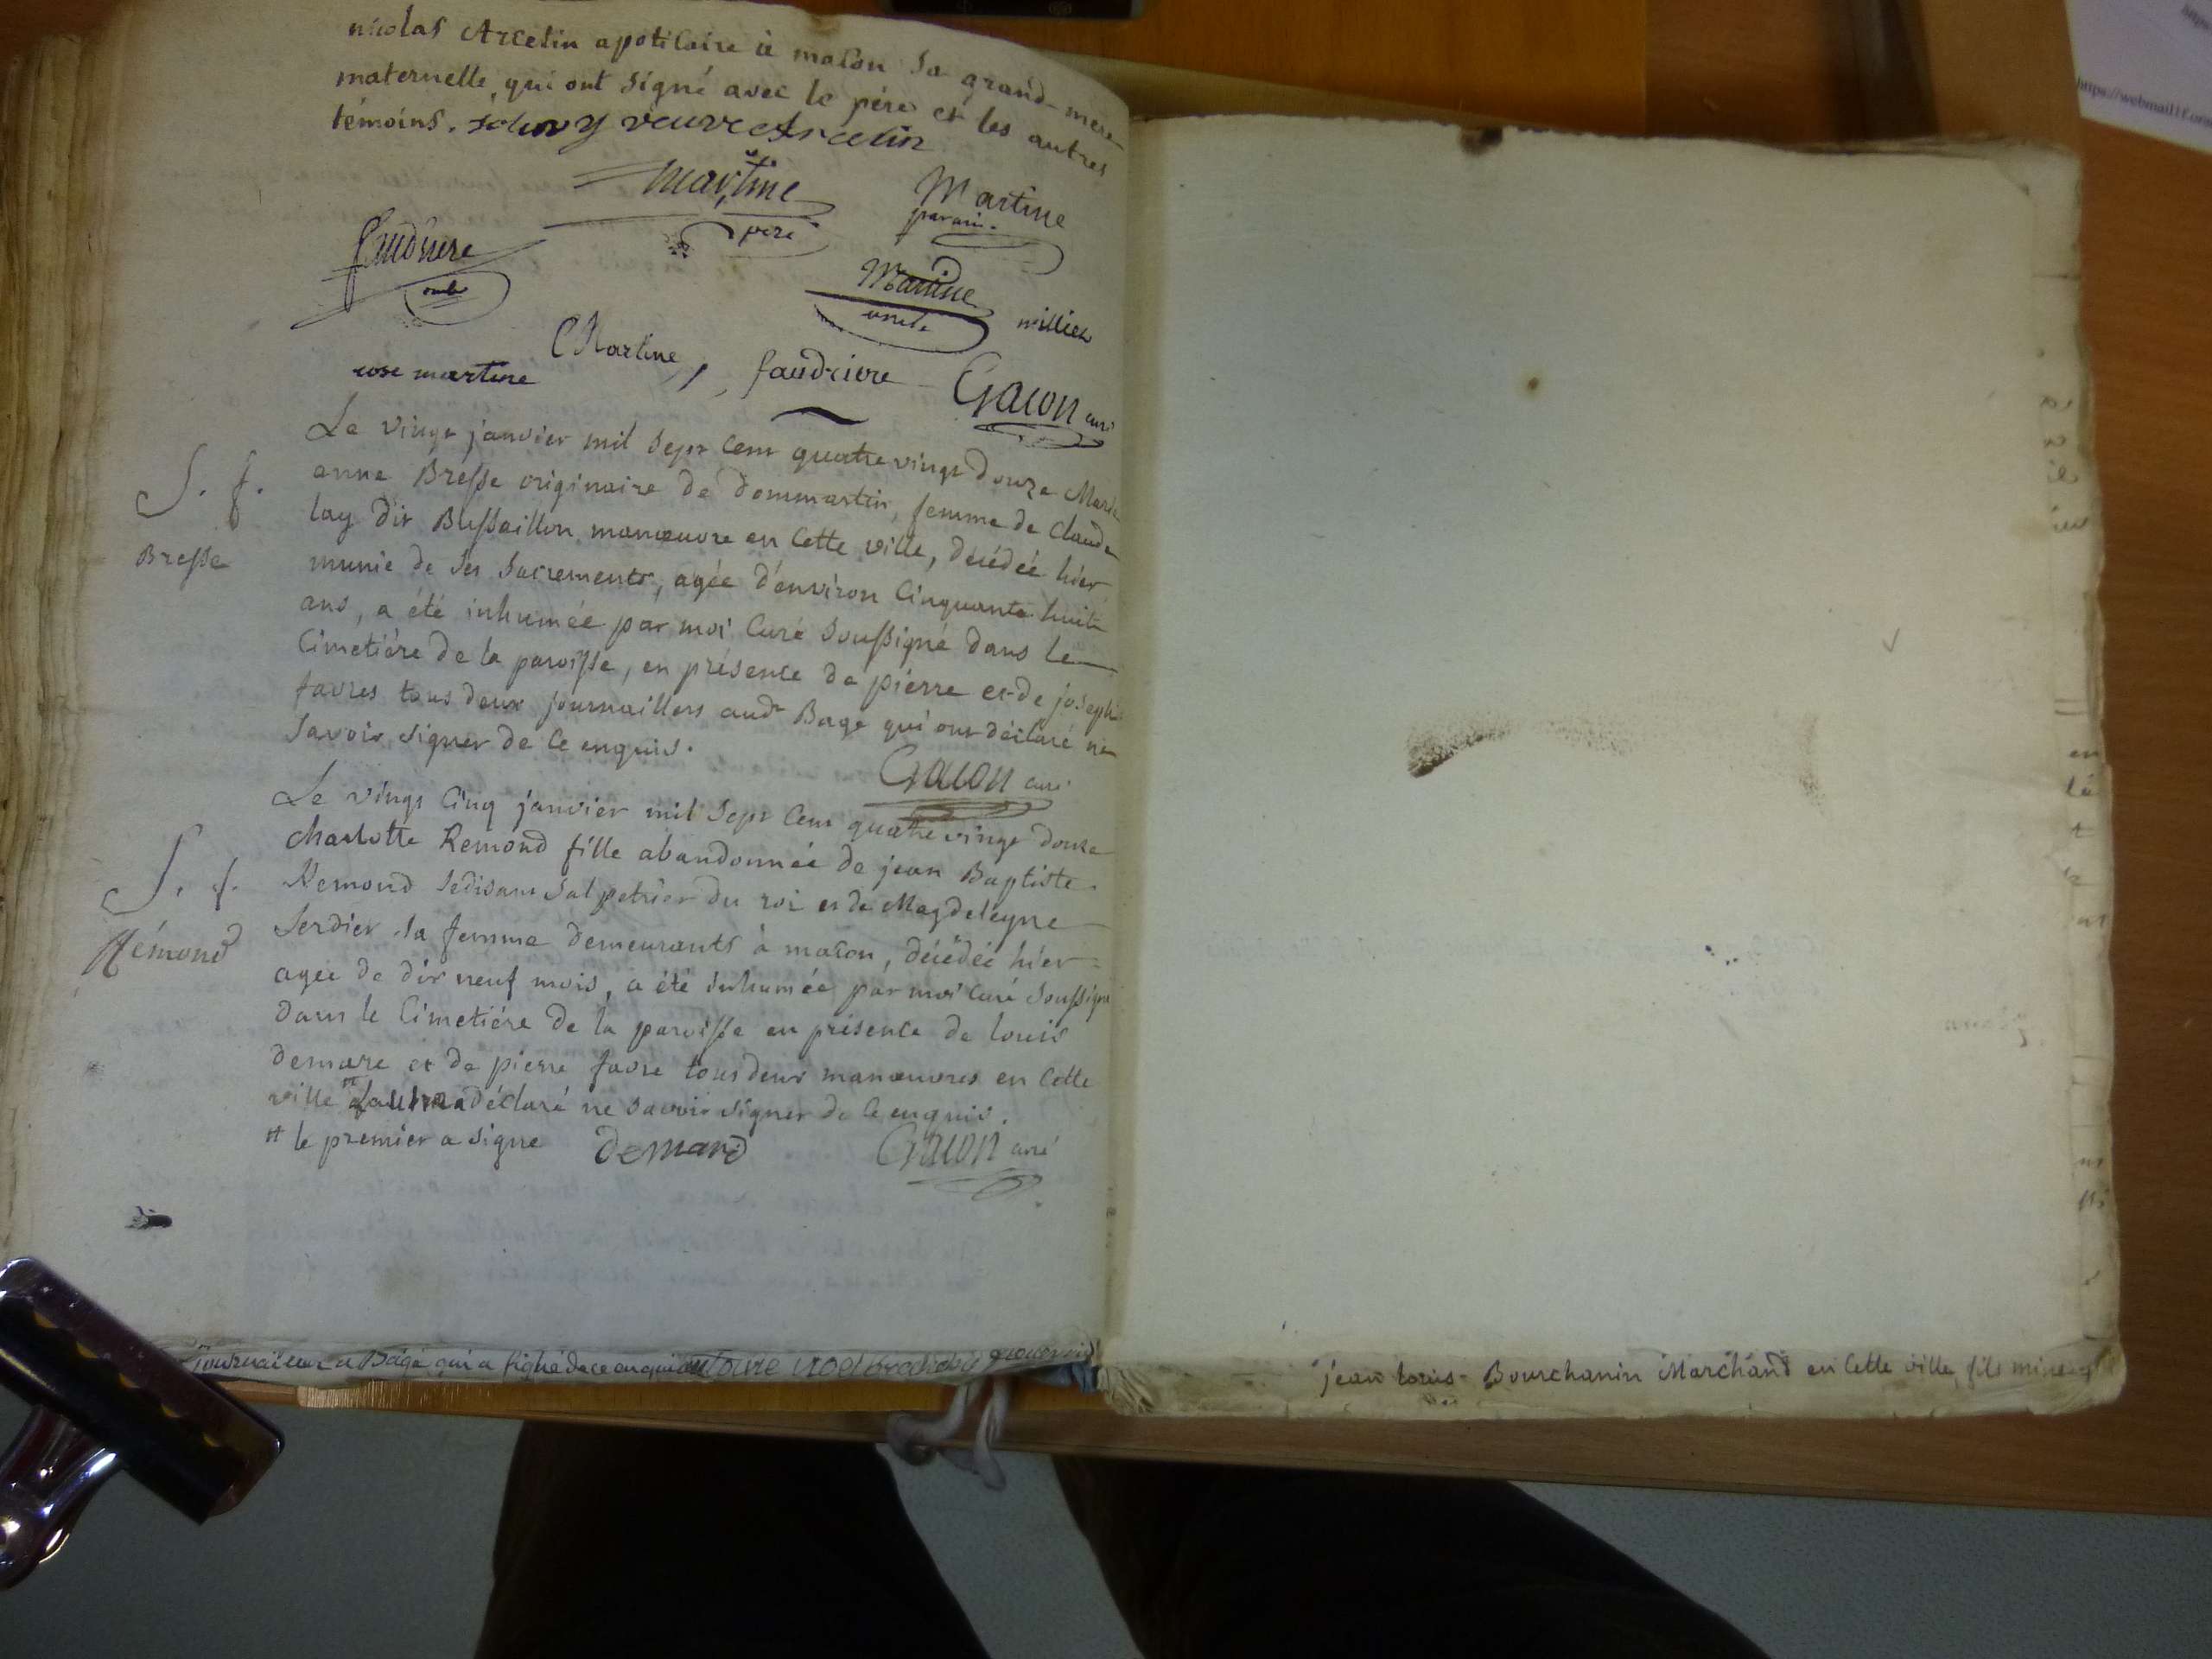 nicolas Arcelin apoticaire à macon sa grand-mere
maternelle, qui ont signé avec le pére et les autres
témoins. veuve Arcelin
Martine
pere
Martine
parain.
oncle
Martine
oncle
C Martine, faudrieve
rose martine
Gacon curé
Le vingt janvier mil sept cent quatre vingt douze Marie
anne Bresse originaire de dommartin, femme de Claude
lay dit Bussaillon manœuvre en cette ville, décédée hier
munie de ses sacrements, agée d'environ cinquante huit
ans, a été inhumée par moi curé soussigné dans le
Cimetiére de la paroisse, en présence de pierre et de joseph
favres tous deux journaillers audt Bage qui ont déclaré ne
savoir signer de ce enquis.
Gacon curé
S. f.
Bresse
Le vingt cinq janvier mil sept cent quatre vingt douze
charlotte Remond fille abandonnée de jean Baptiste
Remond sedisant salpetrier du roi et de Magdeleyne
serdier sa femme demeurants à macon, décédée hier
agée de dix neuf mois, a été inhumée par moi curé soussigné
dans le Cimetiére de la paroisse en présence de louis
demare et de pierre favre tous deux manœuvres en cette
ville # l'autre a déclaré ne savoir signer de ce enquis.
# le premier a signé demard Gacon curé
S. f.
Rémond
journailler a Bagé qui a signé de ce enquis
jean louis Bourchanin Marchand en cette ville, fils mineur
https://webmail1f.oran